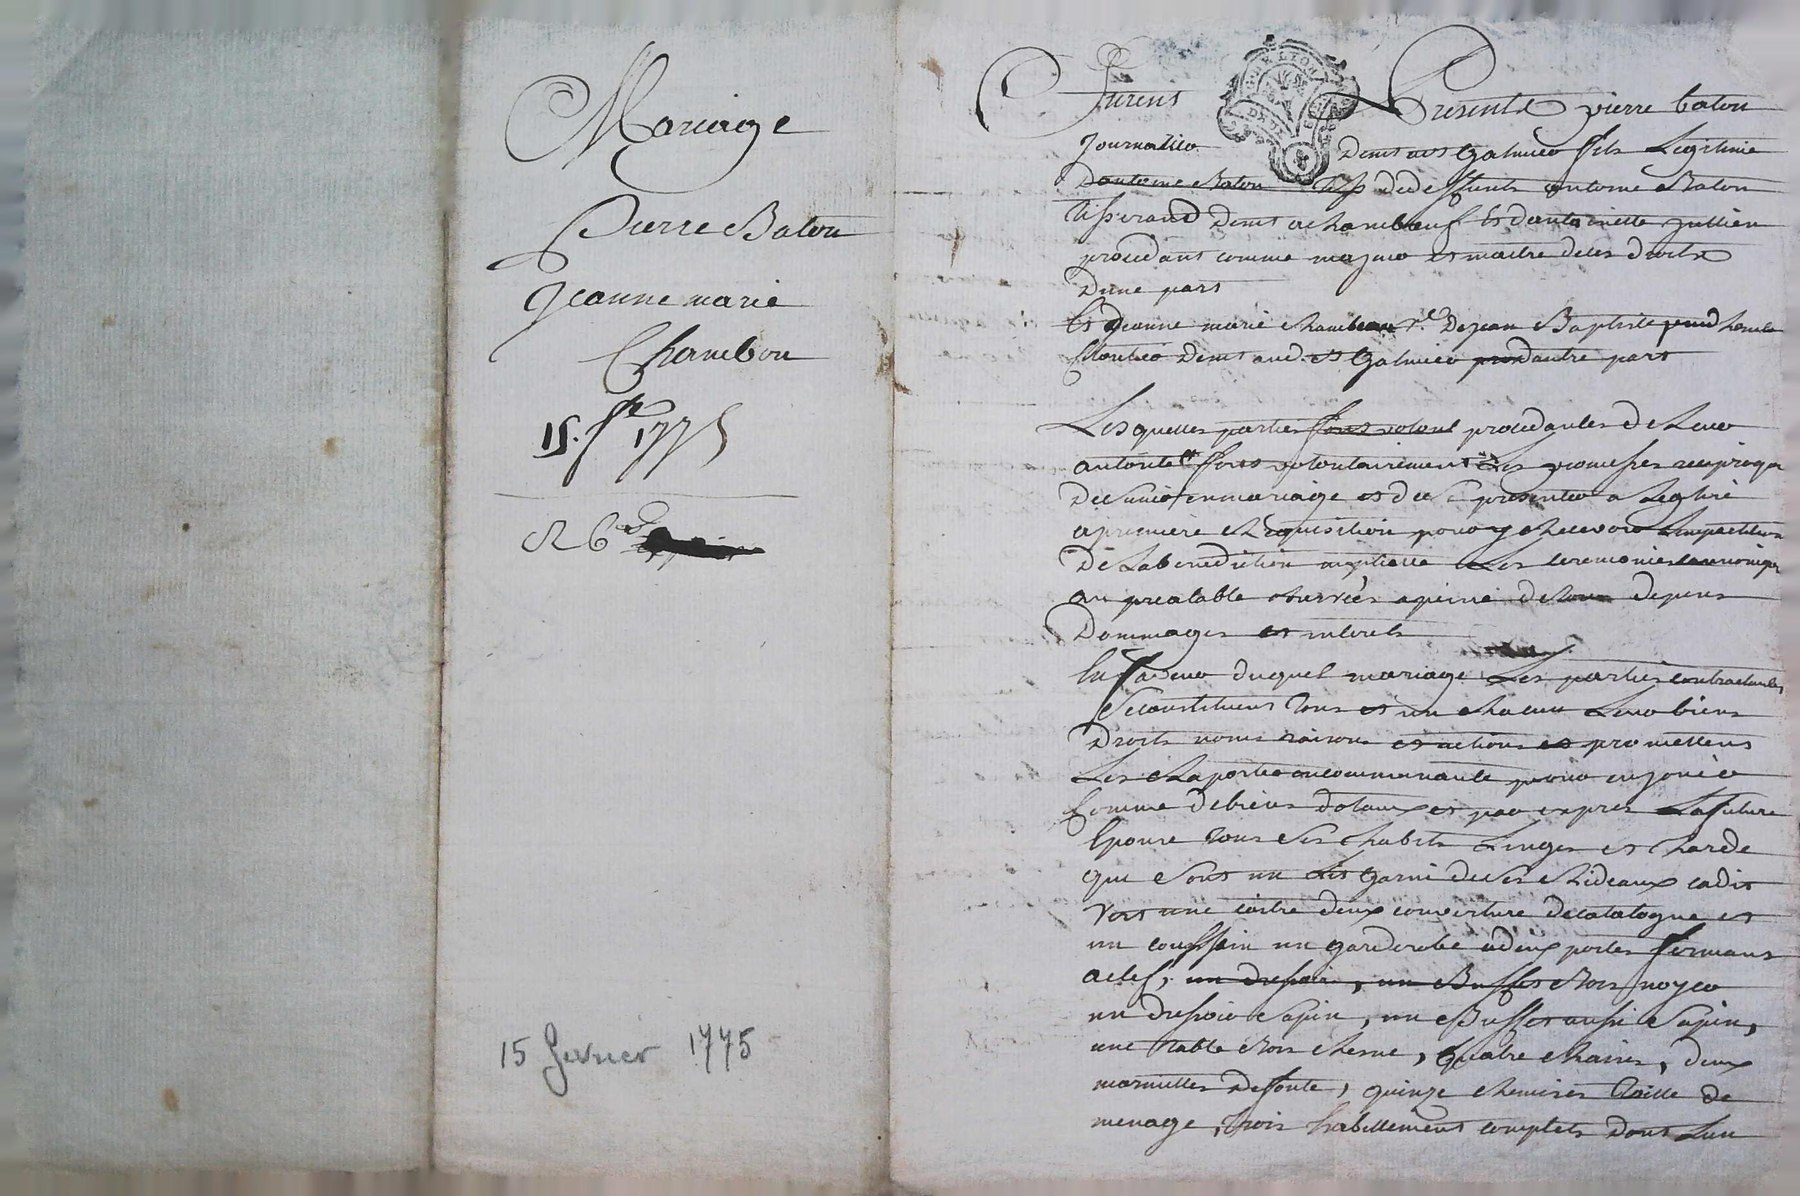 Mariage
Pierre Baton
Jeanne marie
Chambon
15. f.re 1775
R 6
15 fevrier 1775
Furent Presents pierre baton
Journalier demt a St Galmier fils Legitime
d'antoine Baton de deffunts antoine Baton
tisserand demt a chambœuf et d'antoinette Jullien
procedant comme majeur et maitre de ses droits
d'une part
Et Jeanne marie de jean Baptiste
demt aud. St Galmier d'autre part
Lesquelles parties procedantes de Leur
autorité font volontairement Les promesses reciproques
de s'unir en mariage et de se presenter a Leglise
a premiere Requisition pour y Recevoir
De La benediction nuptialle Les ceremonies canoniques
au prealable observées a peine de tous depens
Dommages et interets
En faveur duquel mariage Les parties contractantes
se constituent tous et un chacun Leur biens
droits noms raisons et actions et promettent
Les Raporter en communauté pour en jouir
comme de biens dotaux et par expres La future
Epouse tous ses habits Linges et harde
qui sont un Lit garni de ses Rideaux cadis
vert une coitre deux couverture de catalogne et
un coussin un garderobe a deux portes fermant
a clef, un dressoir, un Buffet Bois noyer
un dressoir sapin, un Buffet aussi sapin,
une table Bois chesne, quatre chaises, deux
marmittes de fonte, quinze chemises toille de
menage, trois habillements complets dont Lun